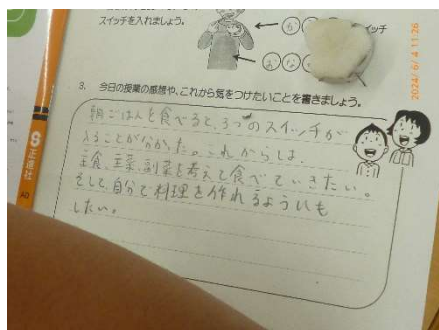 スイッチを入れましょう。
か
イッチ
おな
3. 今日の授業の感想や、これから気をつけたいことを書きましょう。
朝ごはんを食べると、3つのスイッチが
入ることが分かった。これからは、
主食、主菜、副菜を考えて食べていきたい。
そして、自分で料理を作れるようにも
したい。
2024/6/4 11:26